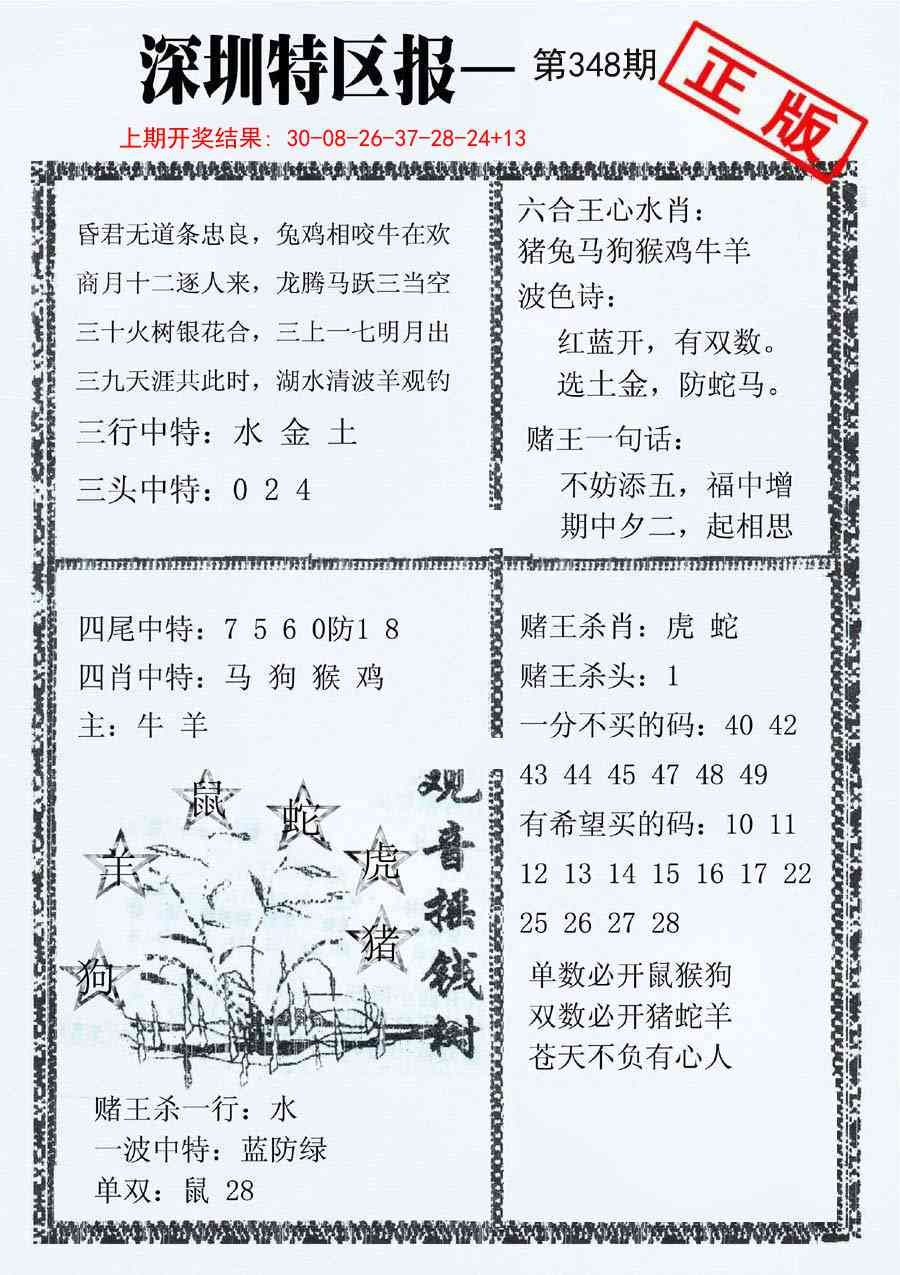 深圳特区报—第348期
正版
上期开奖结果: 30-08-26-37-28-24+13
昏君无道条忠良，兔鸡相咬牛在欢
商月十二逐人来，龙腾马跃三当空
三十火树银花合，三上一七明月出
三九天涯共此时，湖水清波羊观钓
三行中特：水 金 土
三头中特：0 2 4
六合王心水肖：
猪兔马狗猴鸡牛羊
波色诗：
红蓝开，有双数。
选土金，防蛇马。
赌王一句话：
不妨添五，福中增
期中夕二，起相思
四尾中特：7 5 6 0防1 8
四肖中特：马 狗 猴 鸡
主：牛 羊
鼠
蛇
羊
虎
猪
狗
观音摇钱树
赌王杀一行：水
一波中特：蓝防绿
单双：鼠 28
赌王杀肖：虎 蛇
赌王杀头：1
一分不买的码：40 42
43 44 45 47 48 49
有希望买的码：10 11
12 13 14 15 16 17 22
25 26 27 28
单数必开鼠猴狗
双数必开猪蛇羊
苍天不负有心人